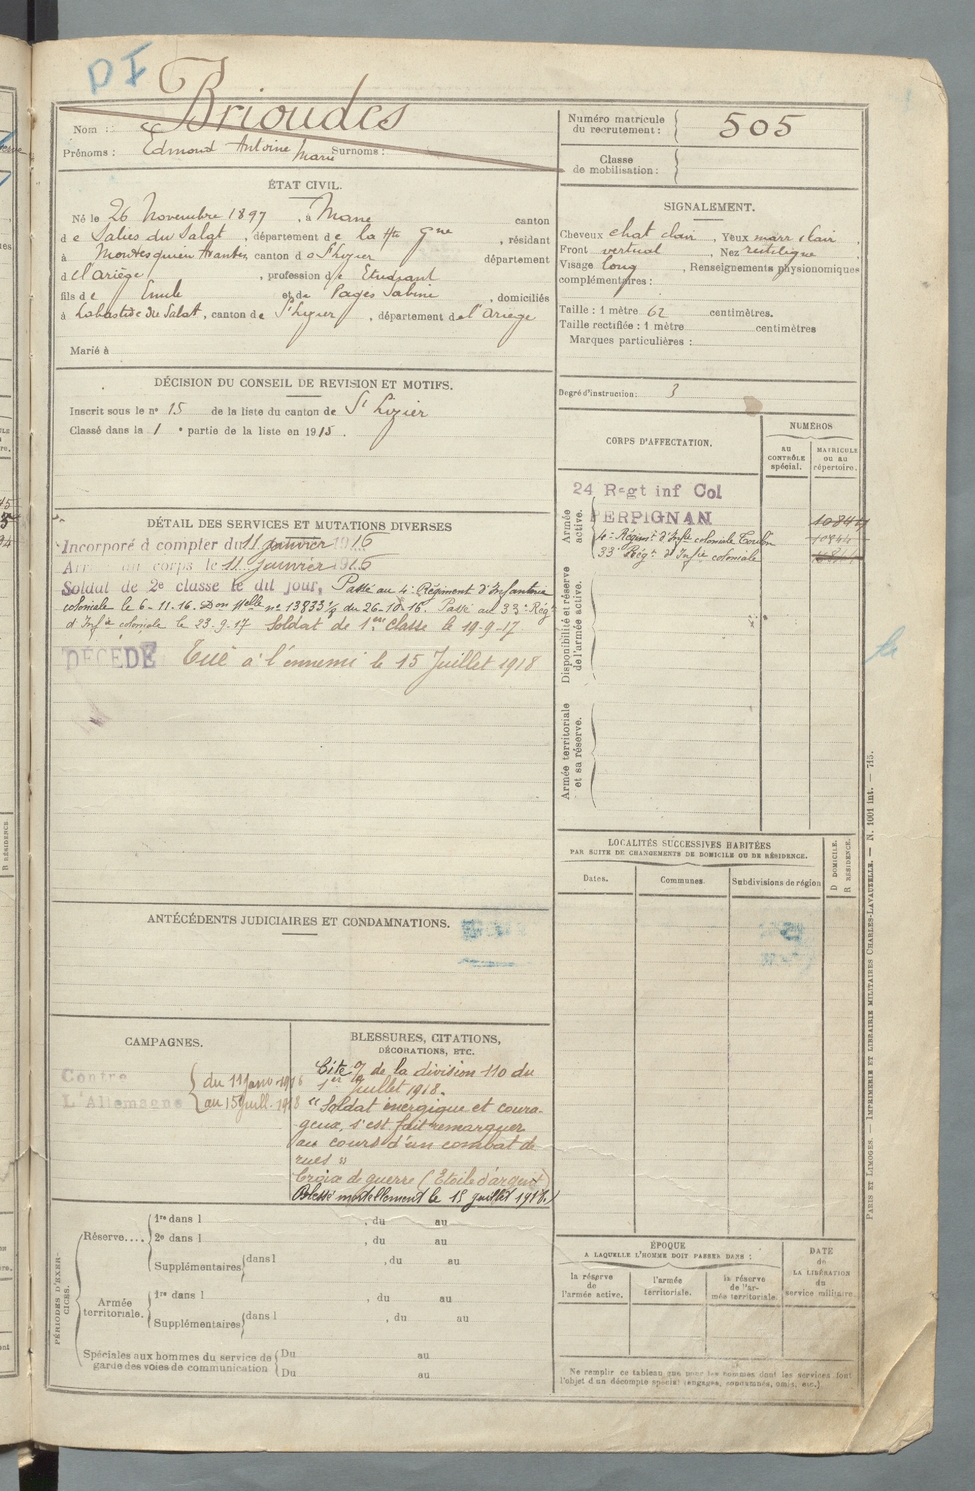 DI
Nom : Brioudes
Prénoms : Edmond Antoine Marie Surnoms :
Numéro matricule du recrutement : 505
Classe de mobilisation :
ÉTAT CIVIL.
Né le 26 Novembre 1897, à Mane canton
de Salies du Salat, département de la Hte Gne, résidant
à Montesquieu Avantès canton de St Lizier département
de l'Ariège, profession de Etudiant
fils de Emile et de Pagès Sabine, domiciliés
à Labastide du Salat, canton de St Lizier, département de l'Ariège
Marié à
SIGNALEMENT.
Cheveux chat clair, Yeux marr clair,
Front vertical, Nez rectiligne,
Visage long, Renseignements physionomiques
complémentaires :
Taille : 1 mètre 62 centimètres.
Taille rectifiée : 1 mètre centimètres
Marques particulières :
Degré d'instruction : 3
DÉCISION DU CONSEIL DE REVISION ET MOTIFS.
Inscrit sous le no 15 de la liste du canton de St Lizier
Classé dans la 1 e partie de la liste en 1915.
DÉTAIL DES SERVICES ET MUTATIONS DIVERSES
Incorporé à compter du 11 janvier 1916
Arrivé au corps le 11 janvier 1916
Soldat de 2e classe le dit jour, Passé au 4e Régiment d'Infanterie
coloniale le 6-11-16. Don Melle no 13833 du 26-10-16. Passé au 33e Rég
d'Infie coloniale le 23-9-17 Soldat de 1ère classe le 19-9-17
DÉCÉDÉ Tué à l'ennemi le 15 Juillet 1918
CORPS D'AFFECTATION.
NUMÉROS
au contrôle spécial.
matricule ou au répertoire.
Armée active.
24 Regt inf Col
PERPIGNAN
4e Régimt d'Infie coloniale Toulon
33e Régt d'Infie coloniale
Disponibilité et réserve de l'armée active.
Armée territoriale et sa réserve.
LOCALITÉS SUCCESSIVES HABITÉES
PAR SUITE DE CHANGEMENTS DE DOMICILE OU DE RÉSIDENCE.
Dates. Communes. Subdivisions de région
D DOMICILE.
R RÉSIDENCE.
ANTÉCÉDENTS JUDICIAIRES ET CONDAMNATIONS.
CAMPAGNES.
Contre
L'Allemagne
du 11 Janv. 1916
au 15 Juill. 1918
BLESSURES, CITATIONS,
DÉCORATIONS, ETC.
Cité à de la division 110 du
1er Juillet 1918.
"Soldat énergique et coura-
geux, s'est fait remarquer
au cours d'un combat de
rues"
Croix de guerre (Etoile d'argent)
Blessé mortellement le 15 juillet 1918.
PÉRIODES D'EXERCICES.
Réserve.... 1re dans l , du au
2e dans l , du au
Supplémentaires dans l , du au
Armée territoriale. 1re dans l , du au
Supplémentaires dans l , du au
Spéciales aux hommes du service de garde des voies de communication Du au
Du au
ÉPOQUE
A LAQUELLE L'HOMME DOIT PASSER DANS :
la réserve de l'armée active.
l'armée territoriale.
la réserve de l'armée territoriale.
DATE de LA LIBÉRATION du service militaire.
Ne remplir ce tableau que pour les hommes dont les services font
l'objet d'un décompte spécial (engagés, condamnés, omis, etc.).
PARIS ET LIMOGES. — IMPRIMERIE ET LIBRAIRIE MILITAIRES CHARLES-LAVAUZELLE. — N. 1001 int. — 715.